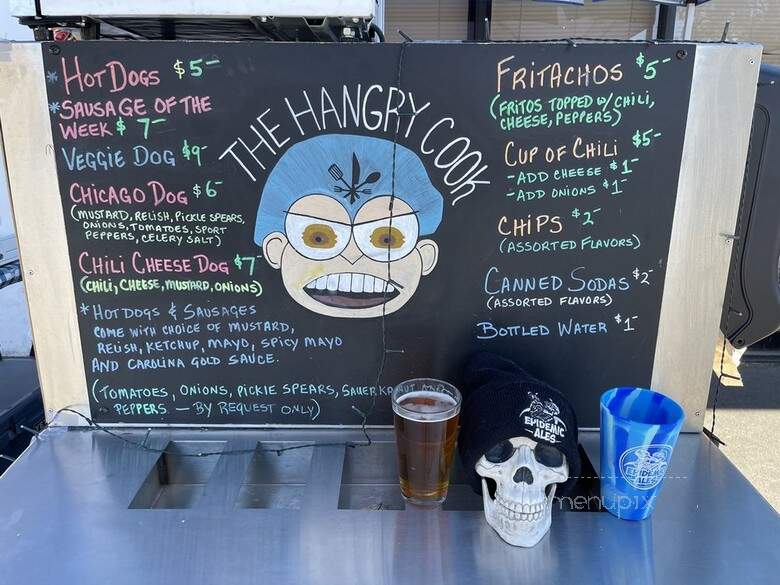 *HOT DOGS $5-
*SAUSAGE OF THE
WEEK $7-
VEGGIE DOG $9-
CHICAGO DOG $6-
(MUSTARD, RELISH, PICKLE SPEARS,
ONIONS, TOMATOES, SPORT
PEPPERS, CELERY SALT)
CHILI CHEESE DOG $7
(CHILI, CHEESE, MUSTARD, ONIONS)
*HOT DOGS & SAUSAGES
COME WITH CHOICE OF MUSTARD,
RELISH, KETCHUP, MAYO, SPICY MAYO
AND CAROLINA GOLD SAUCE.
(TOMATOES, ONIONS, PICKLE SPEARS, SAUERKRAUT AND
PEPPERS - BY REQUEST ONLY)
THE HANGRY COOK
FRITACHOS $5-
(FRITOS TOPPED W/ CHILI,
CHEESE, PEPPERS)
CUP OF CHILI $5-
-ADD CHEESE $1-
-ADD ONIONS $1-
CHIPS $2-
(ASSORTED FLAVORS)
CANNED SODAS $2-
(ASSORTED FLAVORS)
BOTTLED WATER $1-
EPIDEMIC
-ALES-
EPIDEMIC
ALES
menupix